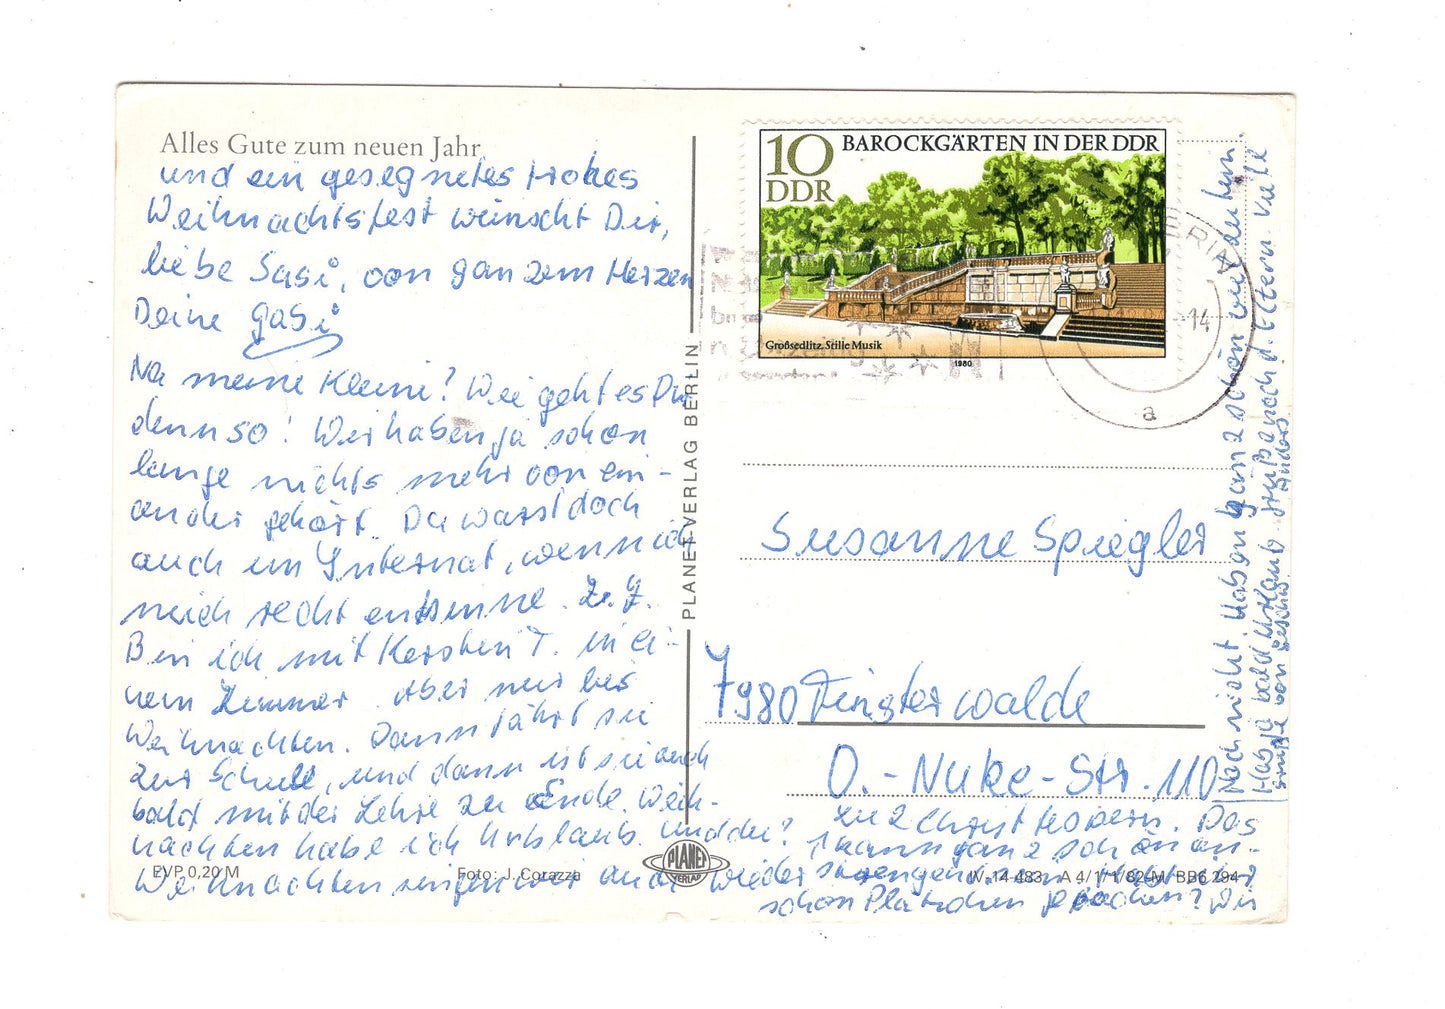 Alles Gute zum neuen Jahr
und ein gesegnetes frohes
Weihnachtsfest wünscht Dir,
liebe Susi, von ganzem Herzen
Deine Gabi
Na meine Kleine? Wie geht es Dir
denn so! Wir haben ja schon
lange nichts mehr von ein-
ander gehört. Du warst doch
auch im Internat, wenn ich
mich recht entsinne. Z. Z.
Bin ich mit Kerstin T. in ei-
nem Zimmer. Aber nur bis
Weihnachten. Dann fährt sie
zur Schule, und dann ist sie auch
bald mit der Lehre zu Ende. Weih-
nachten habe ich Urlaub. Und du?
Weihnachten singen wir auch wieder
zu 2 Christvespern. Das
kann ganz schön an-
strengend
schon Plätzchen gebacken? Wir
Noch nicht. Haben ganz schön
Hab ja bald Urlaub. Grüße noch d. Eltern. Viele
Grüße von
PLANET-VERLAG BERLIN
EVP 0,20 M
Foto: J. Corazza
PLANET
VERLAG
IV-14-483 A 4/1/1/82-M BB6 294
10
DDR
BAROCKGÄRTEN IN DER DDR
Großsedlitz. Stille Musik
1980
-14
a
Susanne Spiegler
7980 Finsterwalde
O.-Nuke-Str. 110